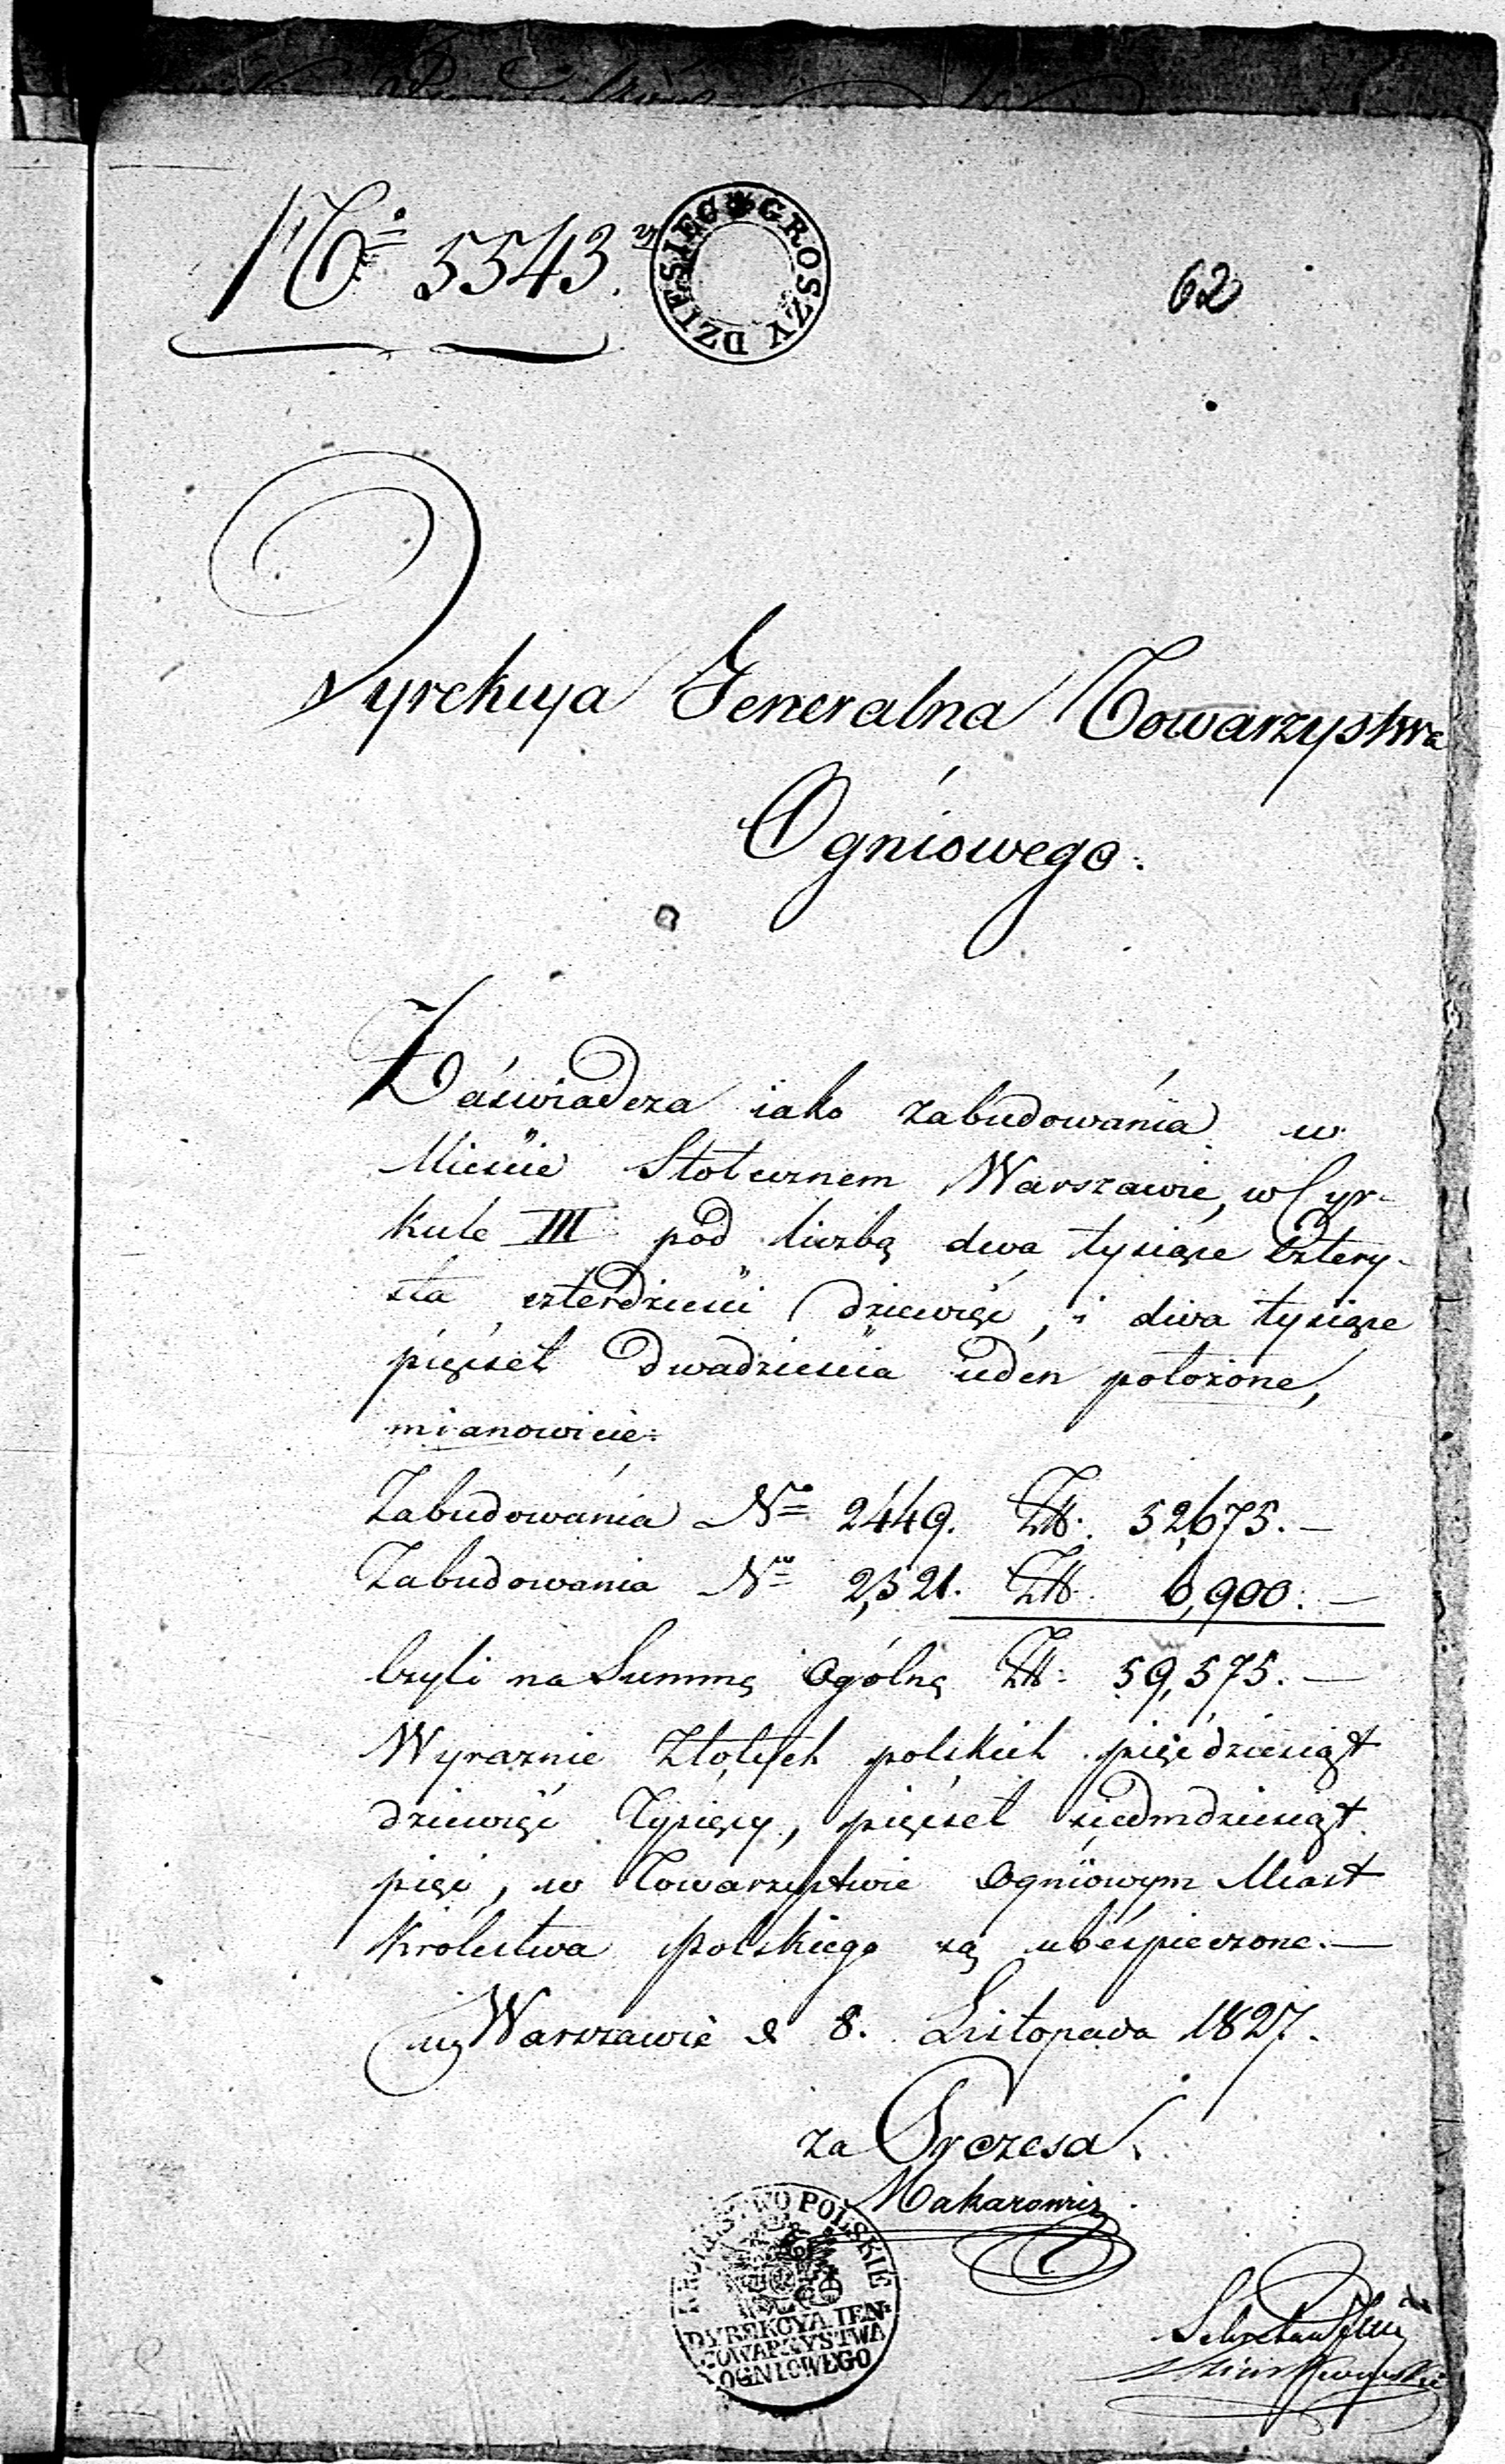 No 5543.
DZIESIĘĆ GROSZY
62
Dyrekcya Jeneralna Towarzystwa
Ogniowego.
Zaświadcza iako zabudowania w
Mieście Stołecznem Warszawie, w Cyr-
kule III pod liczbą dwa tysiące cztery-
sta czterdzieści dziewięć, i dwa tysiące
pięćset dwadzieścia ieden położone,
mianowicie:
Zabudowania No 2449. Zł. 52,675.—
Zabudowania No 2,521. Zł. 6,900.—
Czyli na Summę Ogólną Zł. 59,575.—
Wyraznie Złotych polskich pięćdziesiąt
dziewięć Tysięcy, pięćset siedmdziesiąt
pięć, w Towarzystwie Ogniowym Miast
Królestwa Polskiego są ubespieczone.—
w Warszawie d 8. Listopada 1827.
za Prezesa
Makarowicz
KRÓLESTWO POLSKIE
DYREKCYA IEN:
TOWARZYSTWA
OGNIOWEGO